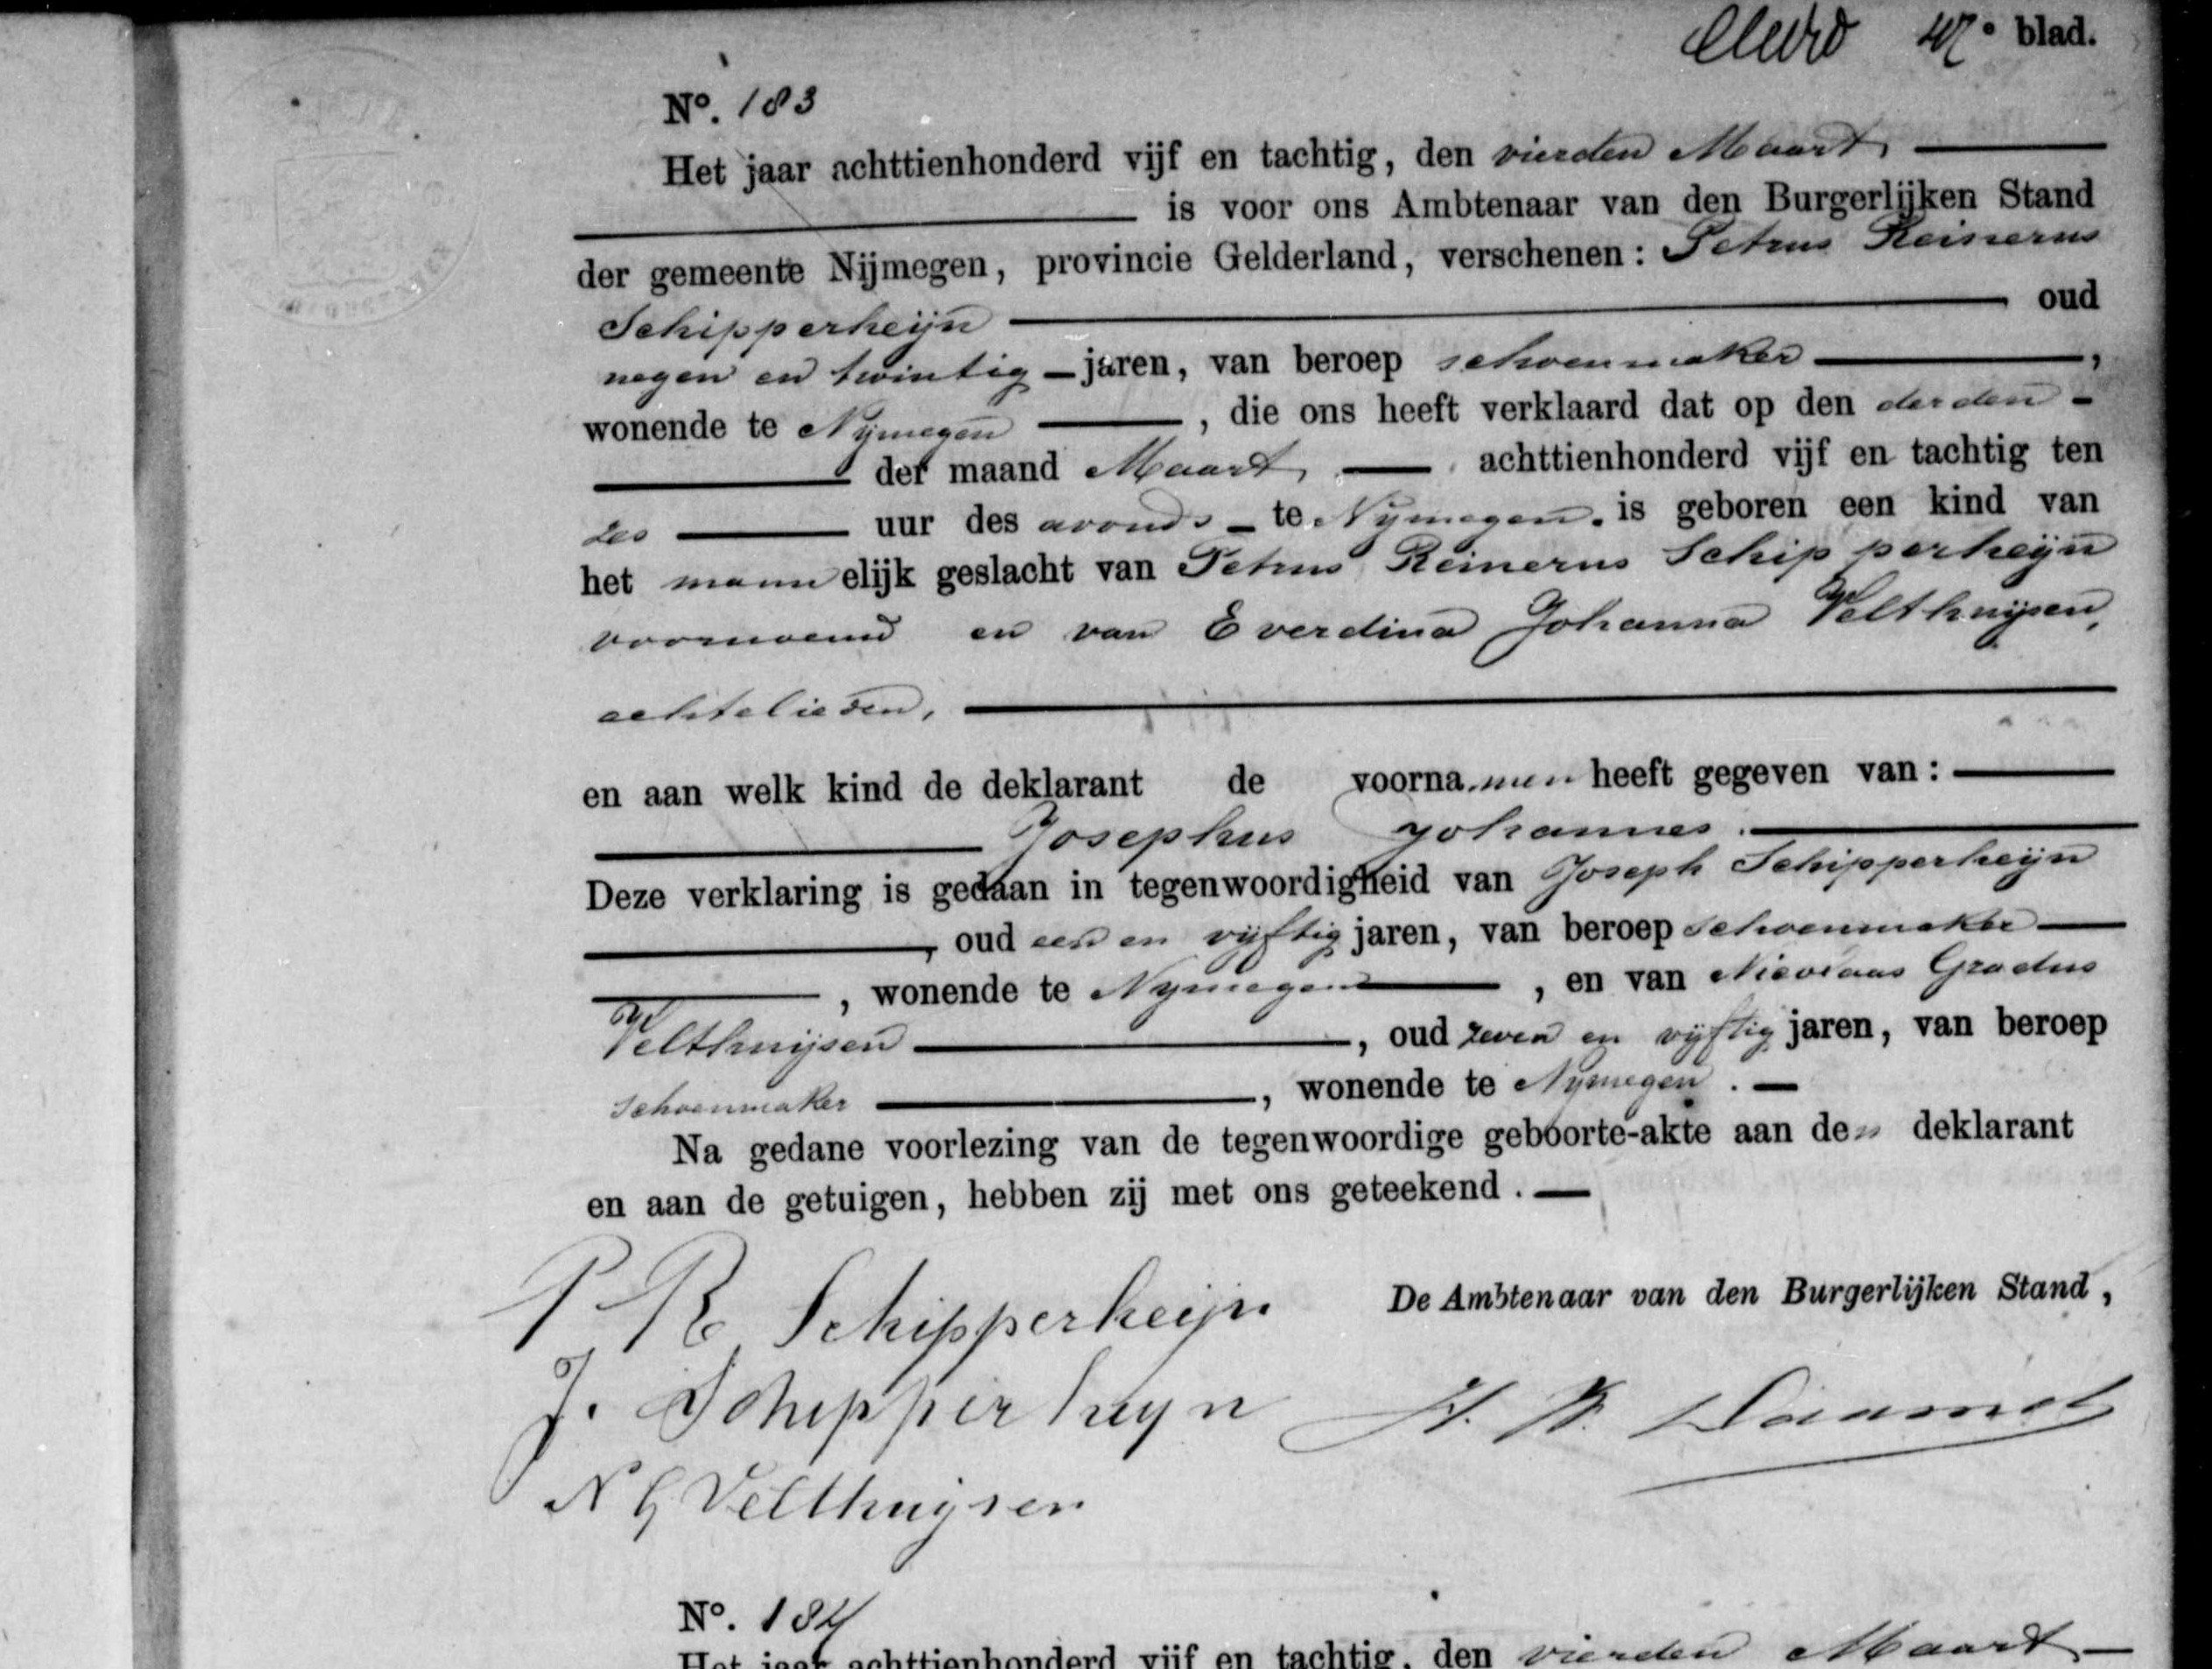 blad.
Nº. 183
Het jaar achttienhonderd vijf en tachtig, den vierden Maart
is voor ons Ambtenaar van den Burgerlijken Stand
der gemeente Nijmegen, provincie Gelderland, verschenen: Petrus Reinerus
Schipperheijn oud
negen en twintig jaren, van beroep schoenmaker,
wonende te Nijmegen, die ons heeft verklaard dat op den derden
der maand Maart achttienhonderd vijf en tachtig ten
zes uur des avonds te Nijmegen. is geboren een kind van
het mannelijk geslacht van Petrus Reinerus Schipperheijn
voornoemd en van Everdina Johanna Velthuijsen,
echtelieden,
en aan welk kind de deklarant de voornamen heeft gegeven van:
Josephus Johannes.
Deze verklaring is gedaan in tegenwoordigheid van Joseph Schipperheijn
, oud een en vijftig jaren, van beroep schoenmaker
, wonende te Nijmegen, en van Nicolaas Gradus
Velthuijsen, oud zeven en vijftig jaren, van beroep
schoenmaker, wonende te Nijmegen.
Na gedane voorlezing van de tegenwoordige geboorte-akte aan den deklarant
en aan de getuigen, hebben zij met ons geteekend.
De Ambtenaar van den Burgerlijken Stand,
P R Schipperheijn
J. Schipperheyn
N G Velthuijsen
Nº. 184
Het jaar achttienhonderd vijf en tachtig, den vierden Maart